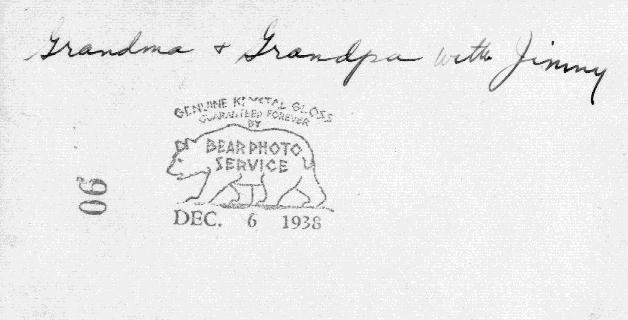 Grandma + Grandpa with Jimmy
GENUINE KRYSTAL GLOSS
GUARANTEED FOREVER
BY
BEAR PHOTO
SERVICE
DEC. 6 1938
90